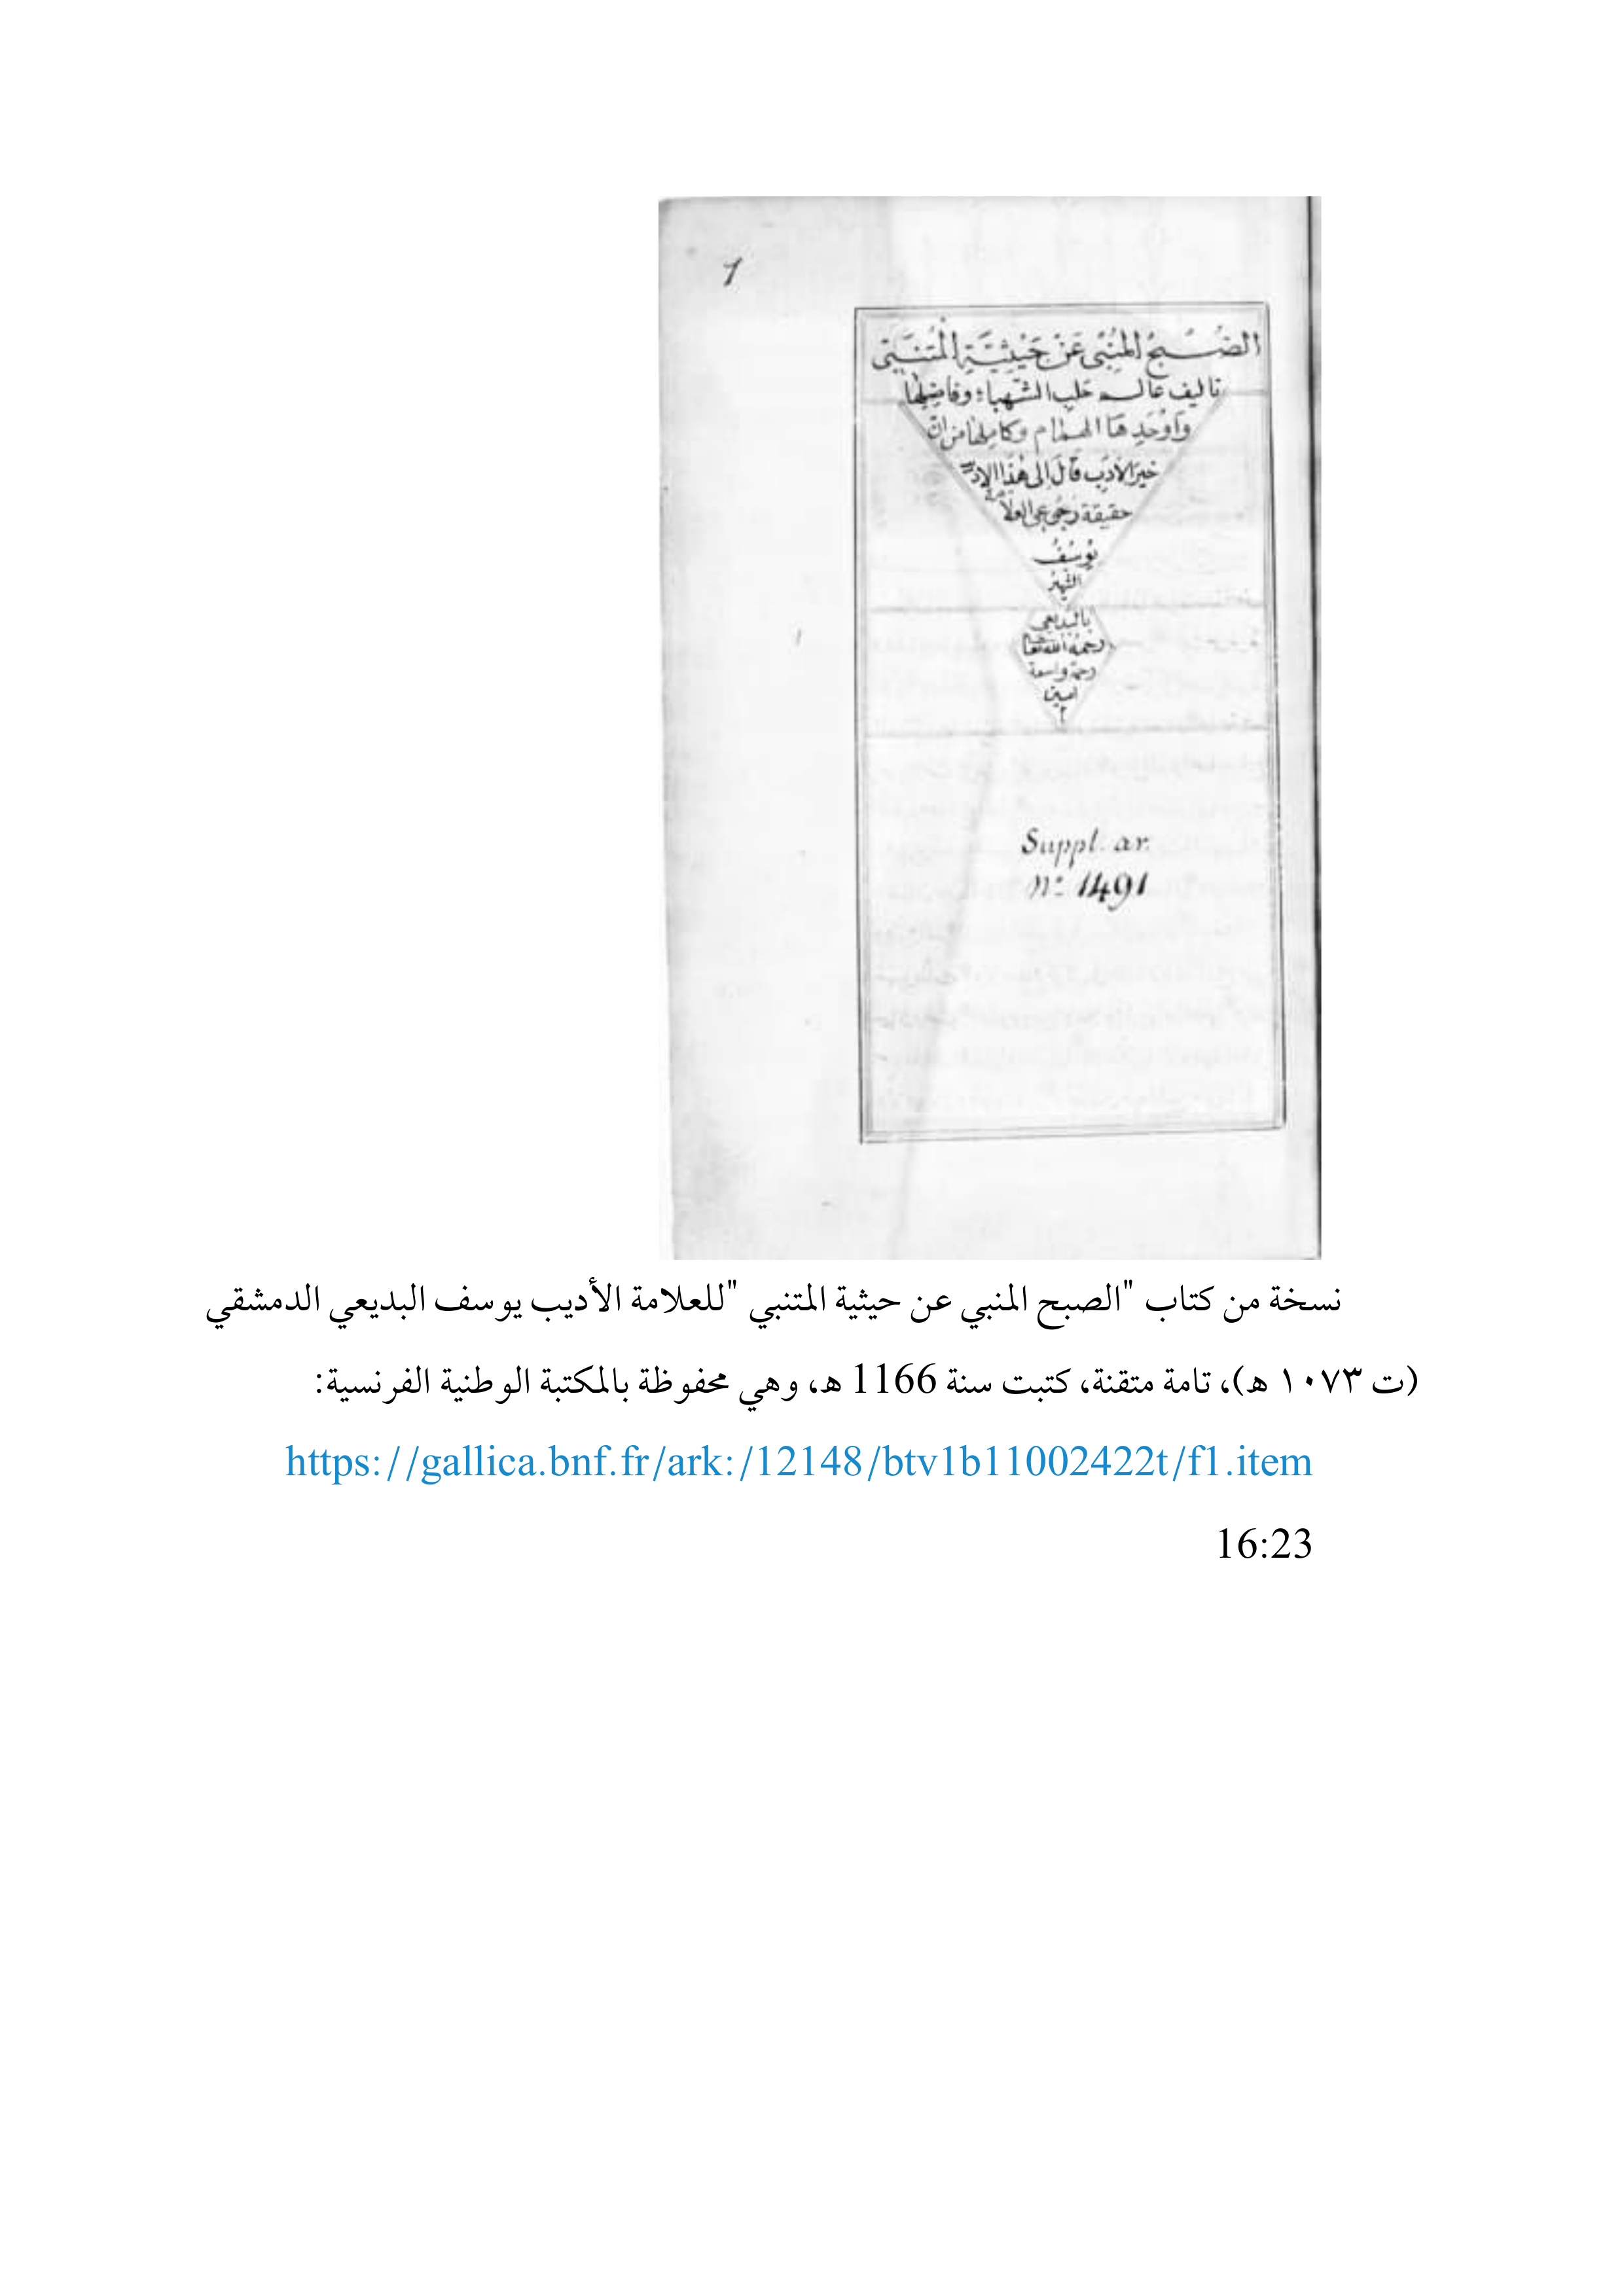 1
الصُّبحُ المُنْبِى عَنْ حَيْثِيَّةِ الْمُتَنَبِّى
تاليف عالم حلب الشهباء وفاضلها
وَاَوْحَدِهَا الهمام وكاملها من ان
خير الادب قال الى هذا
حقيقة رجوعى العلامة
يُوسُفُ
الشهير
بالبديعي
رحمه الله تعا
رحمة واسعة
امين
م
Suppl. ar.
n° 1491
نسخة من كتاب "الصبح المنبي عن حيثية المتنبي "للعلامة الأديب يوسف البديعي الدمشقي
(ت ١٠٧٣ هـ)، تامة متقنة، كتبت سنة 1166 هـ، وهي محفوظة بالمكتبة الوطنية الفرنسية:
https://gallica.bnf.fr/ark:/12148/btv1b11002422t/f1.item
16:23